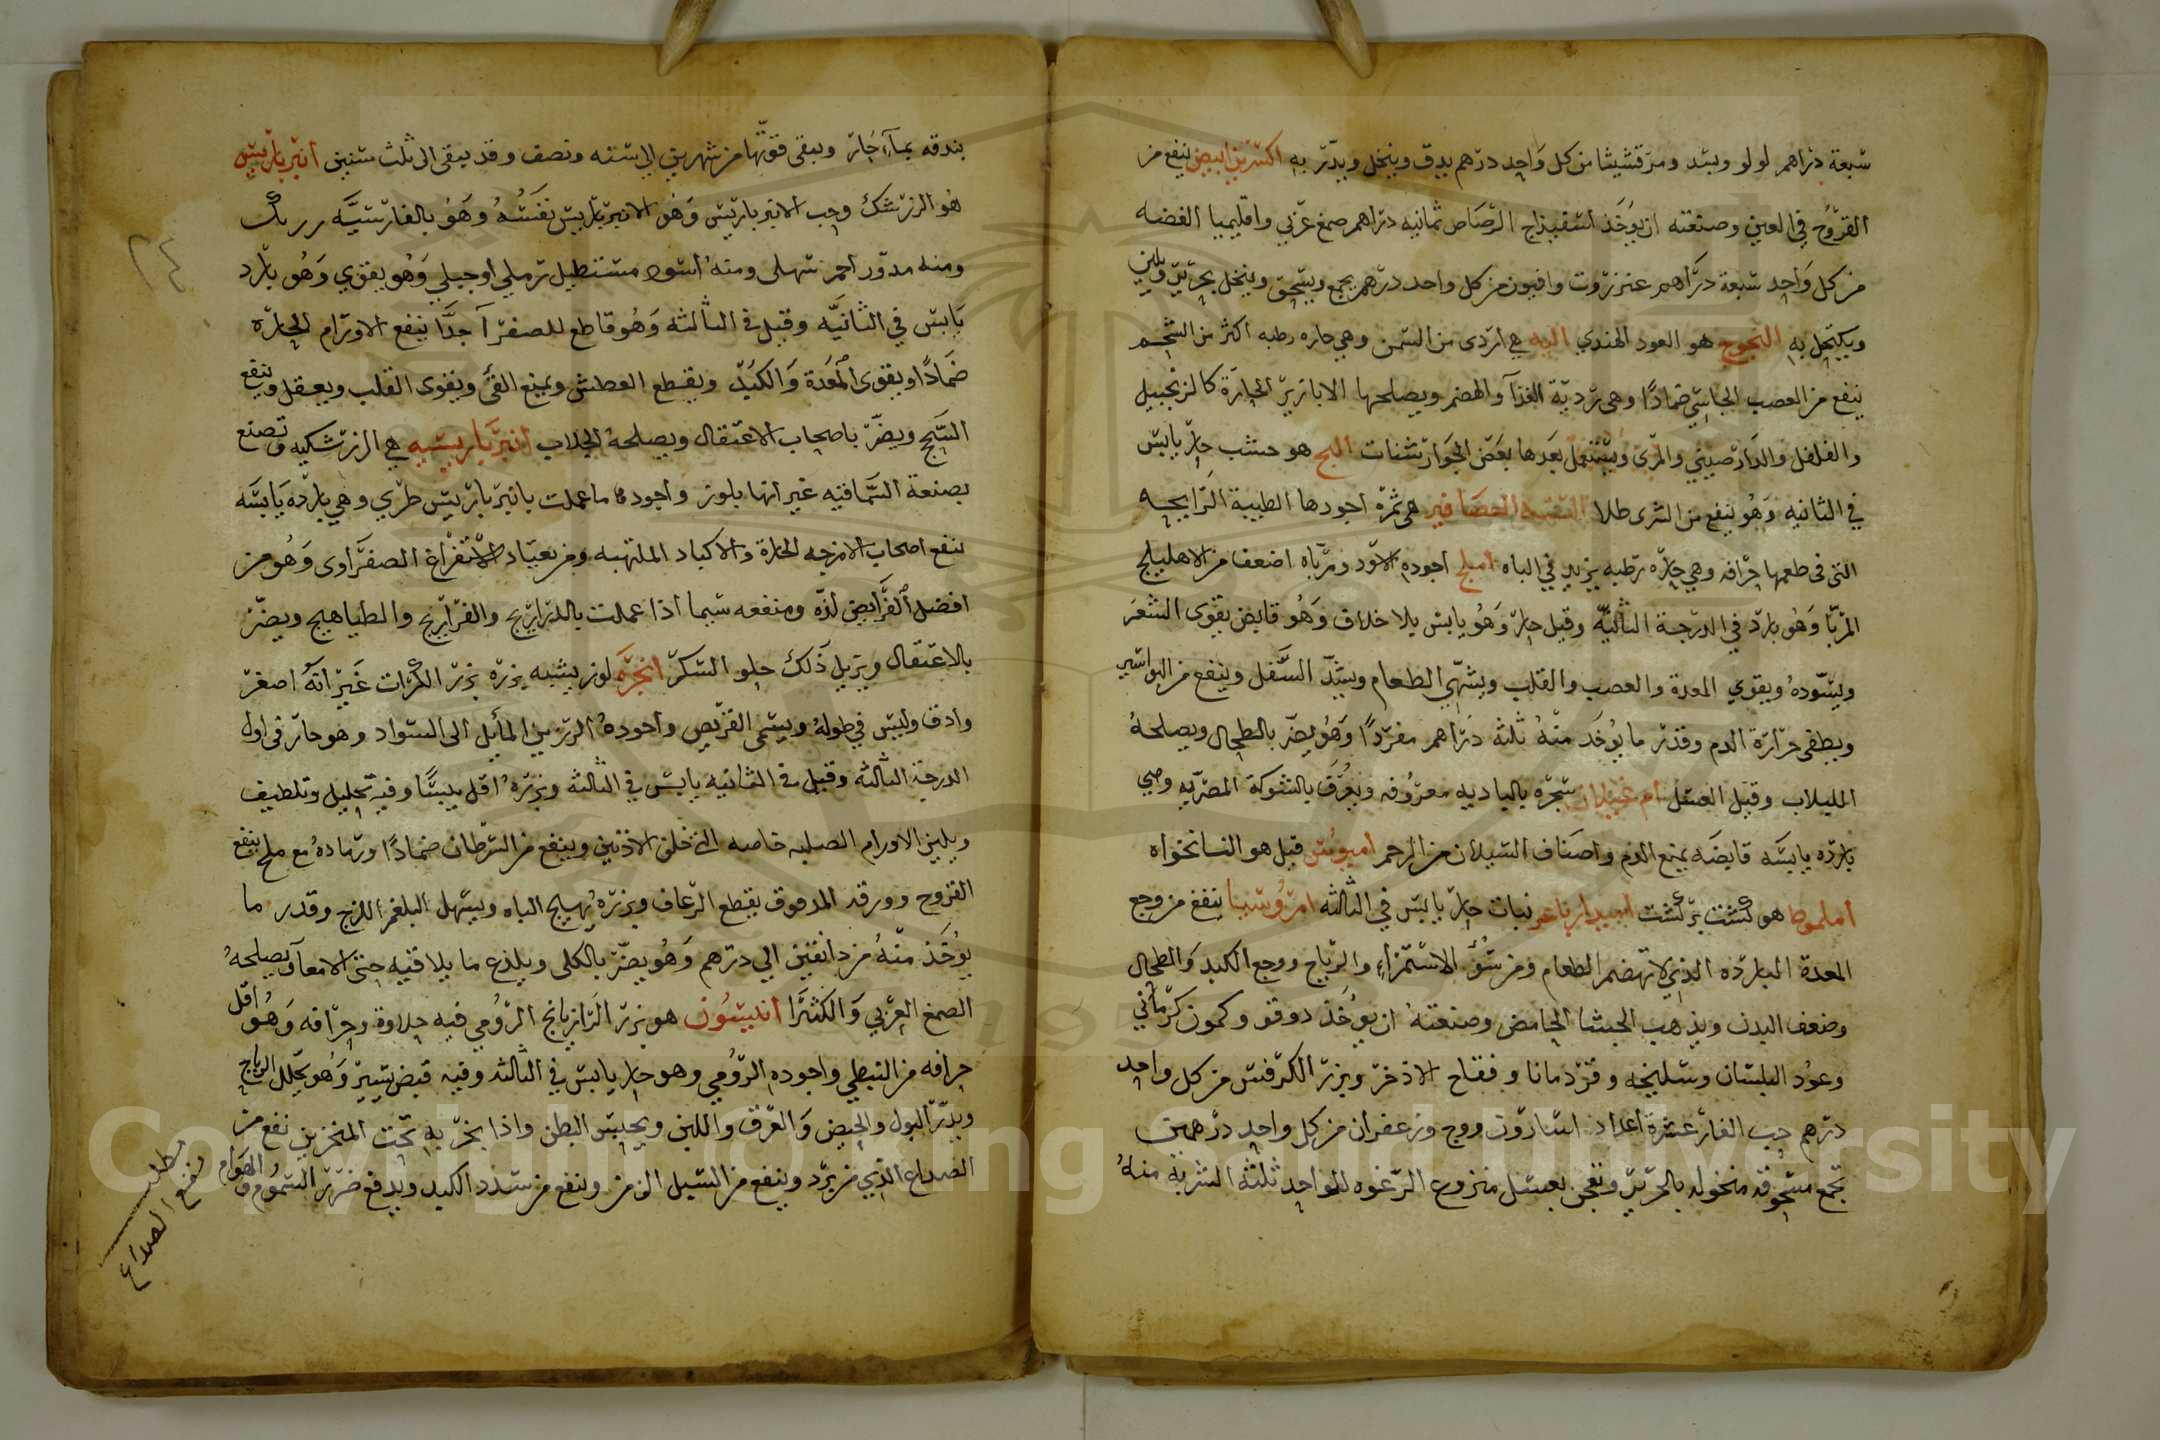 سبعة دراهم لولو وبسد ومرقشيثا من كل واحد درهم يدق وينخل ويدر به اكسرين ابيض ينفع من
القروح في العين وصنعته ان يوخذ اسفيذاج الرصاص ثمانيه دراهم صمغ عربي واقليميا الفضه
من كل واحد سبعة دراهم عنزروت وافيون من كل واحد درهم يجمع ويسحق وينخل بحرير ويلين
ويكتحل به النجوج هو العود الهندي اليه هي اردى من السمن وهي حاره رطبه اكثر من الشحم
ينفع من العصب الجاسي ضمادا وهي رديه الغذآ والهضم ويصلحها الابازير الحارة كالزنجبيل
والفلفل والدارصيني والمرى ويستعمل بعدها بعض الجوارشنات هو خشب حار يابس
في الثانيه وهو ينفع من الشرى طلا العصافير هي ثمرة اجودها الطيبة الرايحه
التى فى طعمها حرافه وهي حاره رطبه يزيد في الباه املج اجوده الاسود ومرباه اضعف من الاهليلج
المربا وهو بارد في الدرجة الثانيه وقيل حار وهو يابس بلا خلاف وهو قابض يقوى الشعر
ويسوده ويقوي المعدة والعصب والقلب ويشهي الطعام ويشد السفل وينفع من البواسير
ويطفى حرارة الدم وقدر ما يوخذ منه ثلثه دراهم مفردا وهو يضر بالطحال ويصلحه
وقيل العسل ام غيلان شجره بالباديه معروفه وتعرف بالشوكة المصريه وهي
بارده يابسه قابضه يمنع الدم واصناف السيلان من الرحم اميوس قيل هو النانخواه
هو كشت بركشت نبات حار يابس في الثالثه امروسيا ينفع من وجع
المعدة البارده الذي لا تهضم الطعام ومن سؤ الاستمراء والرياح ووجع الكبد والطحال
وضعف البدن ويذهب الجشا الحامض وصنعته ان يوخذ دوقو وكمون كرماني
وعود البلسان وسليخه وقردمانا وفقاح الاذخر وبزر الكرفس من كل واحد
درهم حب الغار عشرة اعداد اسارون ووج وزعفران من كل واحد درهمين
تجمع مسحوقه منخوله بالحرير وتعجن بعسل منزوع الرغوه للواحد ثلثه الشربة منه
بندقه بمآء حار ويبقى قوتها من شهرين الى سنه ونصف وقد يبقى الى ثلث سنين انبرباريس
هو الزرشك وحب الانبرباريس وهو الانبرباريس نفسه وهو بالفارسيه زرنك
ومنه مدور احمر سهلى ومنه اسود مستطيل رملي او جبلي وهو يقوي وهو بارد
يابس في الثانيه وقيل في الثالثه وهو قاطع للصفرآ جدا ينفع الاورام الحاره
ضمادا ويقوى المعدة والكبد ويقطع العطش ويمنع القى ويقوى القلب ويعقل وينفع
السحج ويضر باصحاب الاعتقال ويصلحه الجلاب انبرباريسيه هي الزرشكيه وتصنع
بصنعة السماقيه غير انها بلوز واجودها ما عملت بانبرباريس طري وهي بارده يابسه
ينفع اصحاب الامزجه الحارة والاكباد الملتهبه ومن يعتاد الاستفراغ الصفراوى وهو من
افضل القرايص لذه ومنفعه سيما اذا عملت بالدراريج والفراريج والطياهيج ويضر
بالاعتقال ويزيل ذلك حلو السكر انجره لوز يشبه بزره بزر الكراث غير انه اصغر
وادق وليس في طوله ويسمى القريص واجوده الرزين المايل الى السواد وهو حار فى اول
الدرجة الثالثه وقيل في الثانيه يابس في الثالثه وبزره اقل يبسا وفيه تحليل وتلطيف
ويلين الاورام الصلبه خاصه التى خلف الاذنين وينفع من السرطان ضمادا ورماده مع ملح ينفع
القروح وورقه المدقوق يقطع الرعاف وبزره يهيج الباه ويسهل البلغم اللزج وقدر ما
يوخذ منه من دانقين الى درهم وهو يضر بالكلى ويلذع ما يلاقيه حتى الامعآ ويصلحه
الصمغ العربي والكثيرا انيسون هو بزر الرازيانج الرومي فيه حلاوة وحرافه وهو اقل
حرافه من النبطي واجوده الرومي وهو حار يابس في الثالثه وفيه قبض يسير وهو يحلل الرياح
ويدر البول والحيض والعرق واللبن ويحبس البطن واذا بخر به تحت المنخرين نفع من
الصداع الذي من برد وينفع من السيل المزمن وينفع من سدد الكبد ويدفع ضرر السموم والهوام
مطلب
نفع الصداع